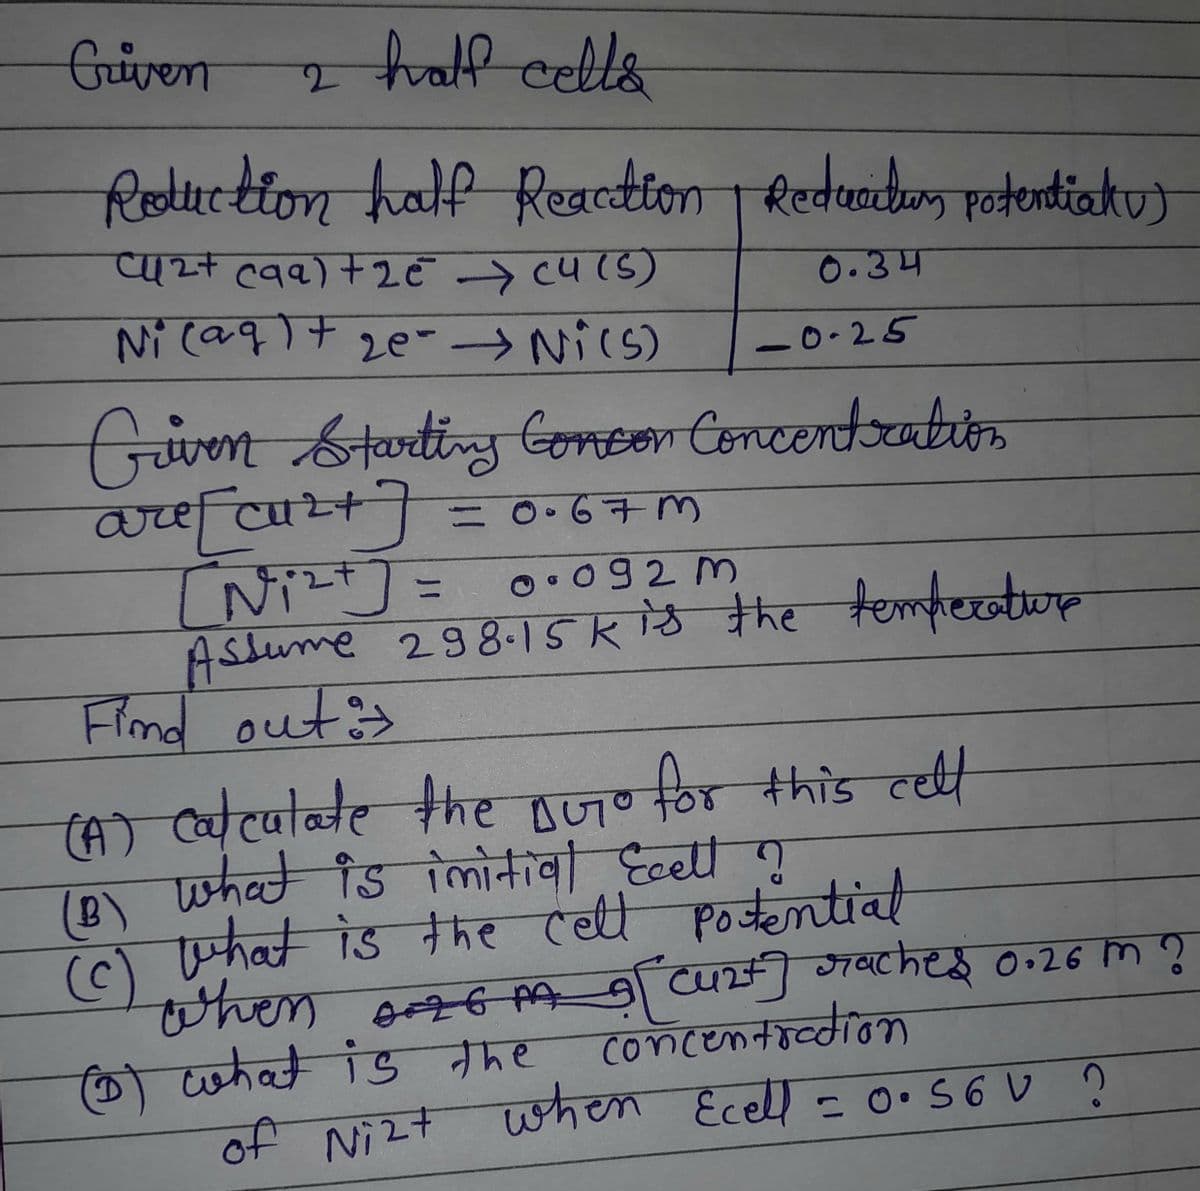 Given 2 half cells
Reduction half Reaction | Reduction potential(v)
Cu2+ (aq) + 2e- → Cu (s) 0.34
Ni (aq) + 2e- → Ni(s) -0.25
Given Starting Concentration
are [Cu2+] = 0.67 M
[Ni2+] = 0.092 M
Assume 298.15 K is the temperature
Find out :→
(A) Calculate the ΔG° for this cell
(B) what is initial Ecell ?
(C) what is the cell potential
when [Cu2+] raches 0.26 M ?
(D) what is the concentration
of Ni2+ when Ecell = 0.56 V ?